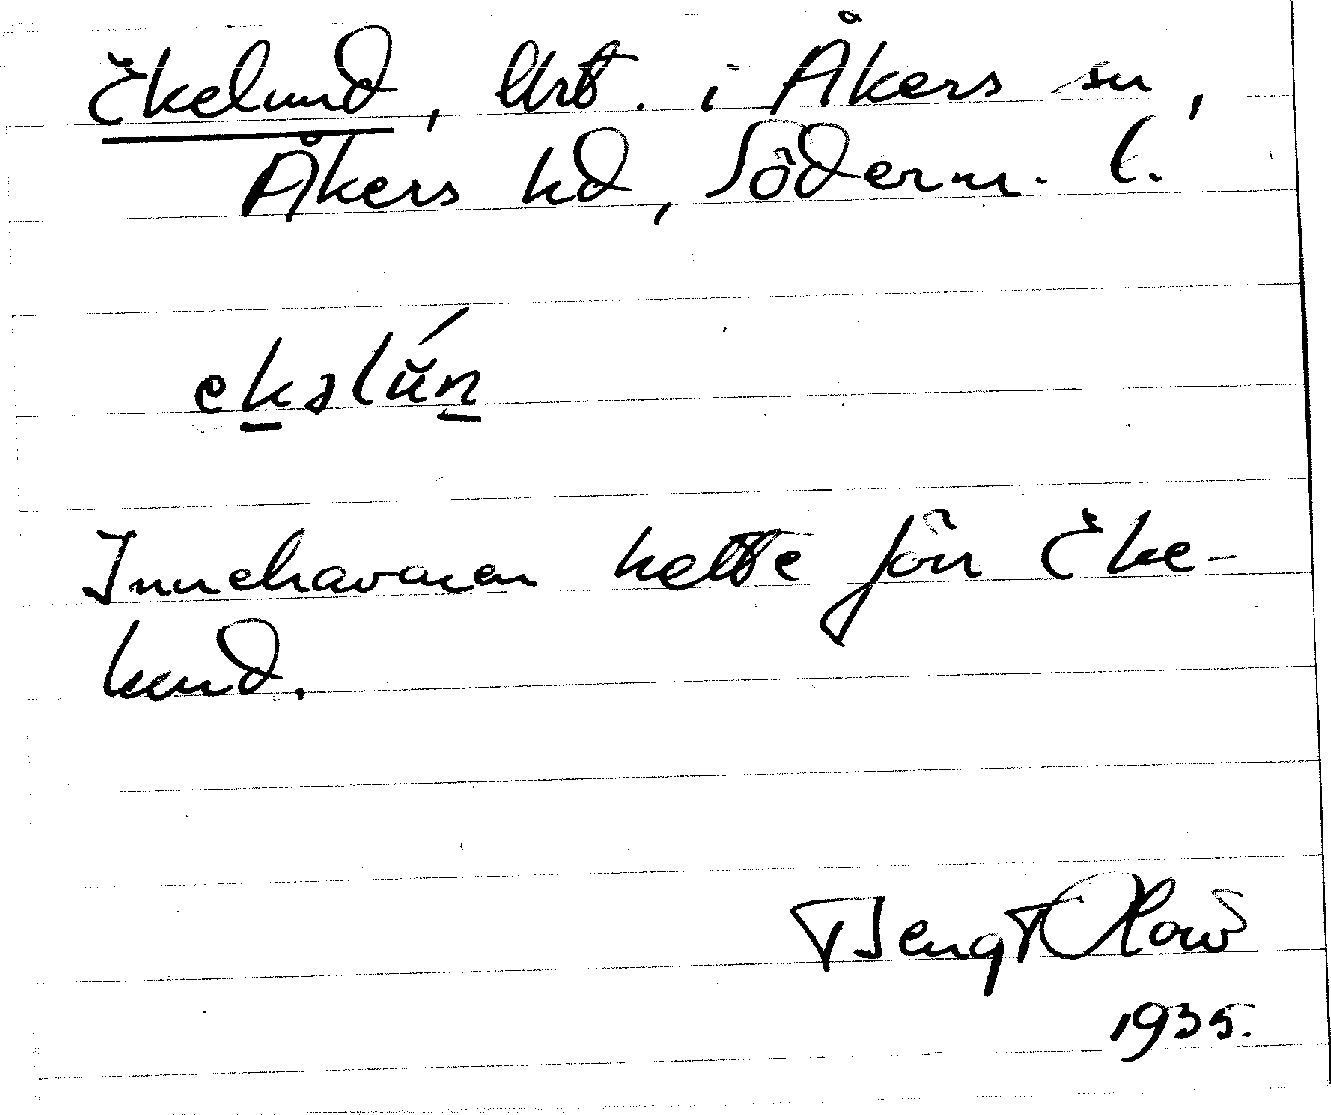 Ekelund, Urb. i Åkers sn,
Åkers hd, Söderm. l.
ekəlún
Innehavaren hette förr Eke-
lund.
Bengt
1935.